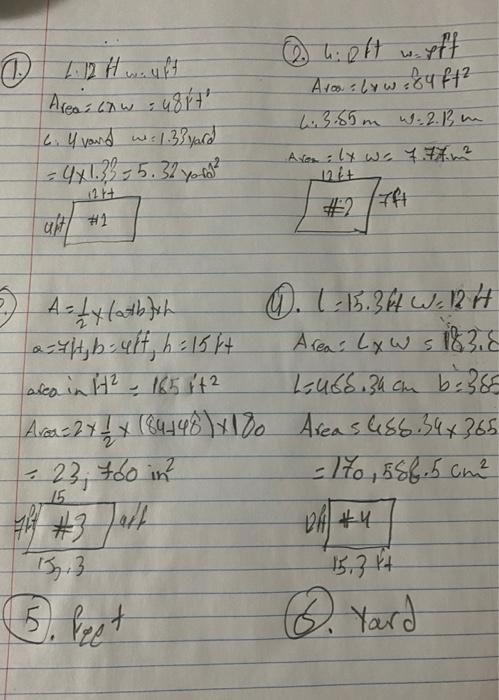 1. L:12 ft w=4ft
Area = L x w = 48ft²
L. 4 yard w=1.33yard
= 4x1.33 = 5.32 yard²
12 ft
4ft #1
2. w=7ft
Area = L x w = 84 ft²
L:3.65 m w=2.13 m
Area = L x w = 7.77m²
12ft
#2 7ft
A = 1/2 x (a+b) x h
a=7ft, b=4ft, h=15ft
area in ft² = 165 ft²
Area = 2 x 1/2 x (84+48) x 180
= 23,760 in²
15
7ft #3 4ft
15.3
4. l=15.3ft w=12 ft
Area = L x w = 183.6
L=466.34 cm b=365
Area = 466.34 x 365
=170,586.5 cm²
12ft #4
15.3 ft
5. Feet
6. Yard